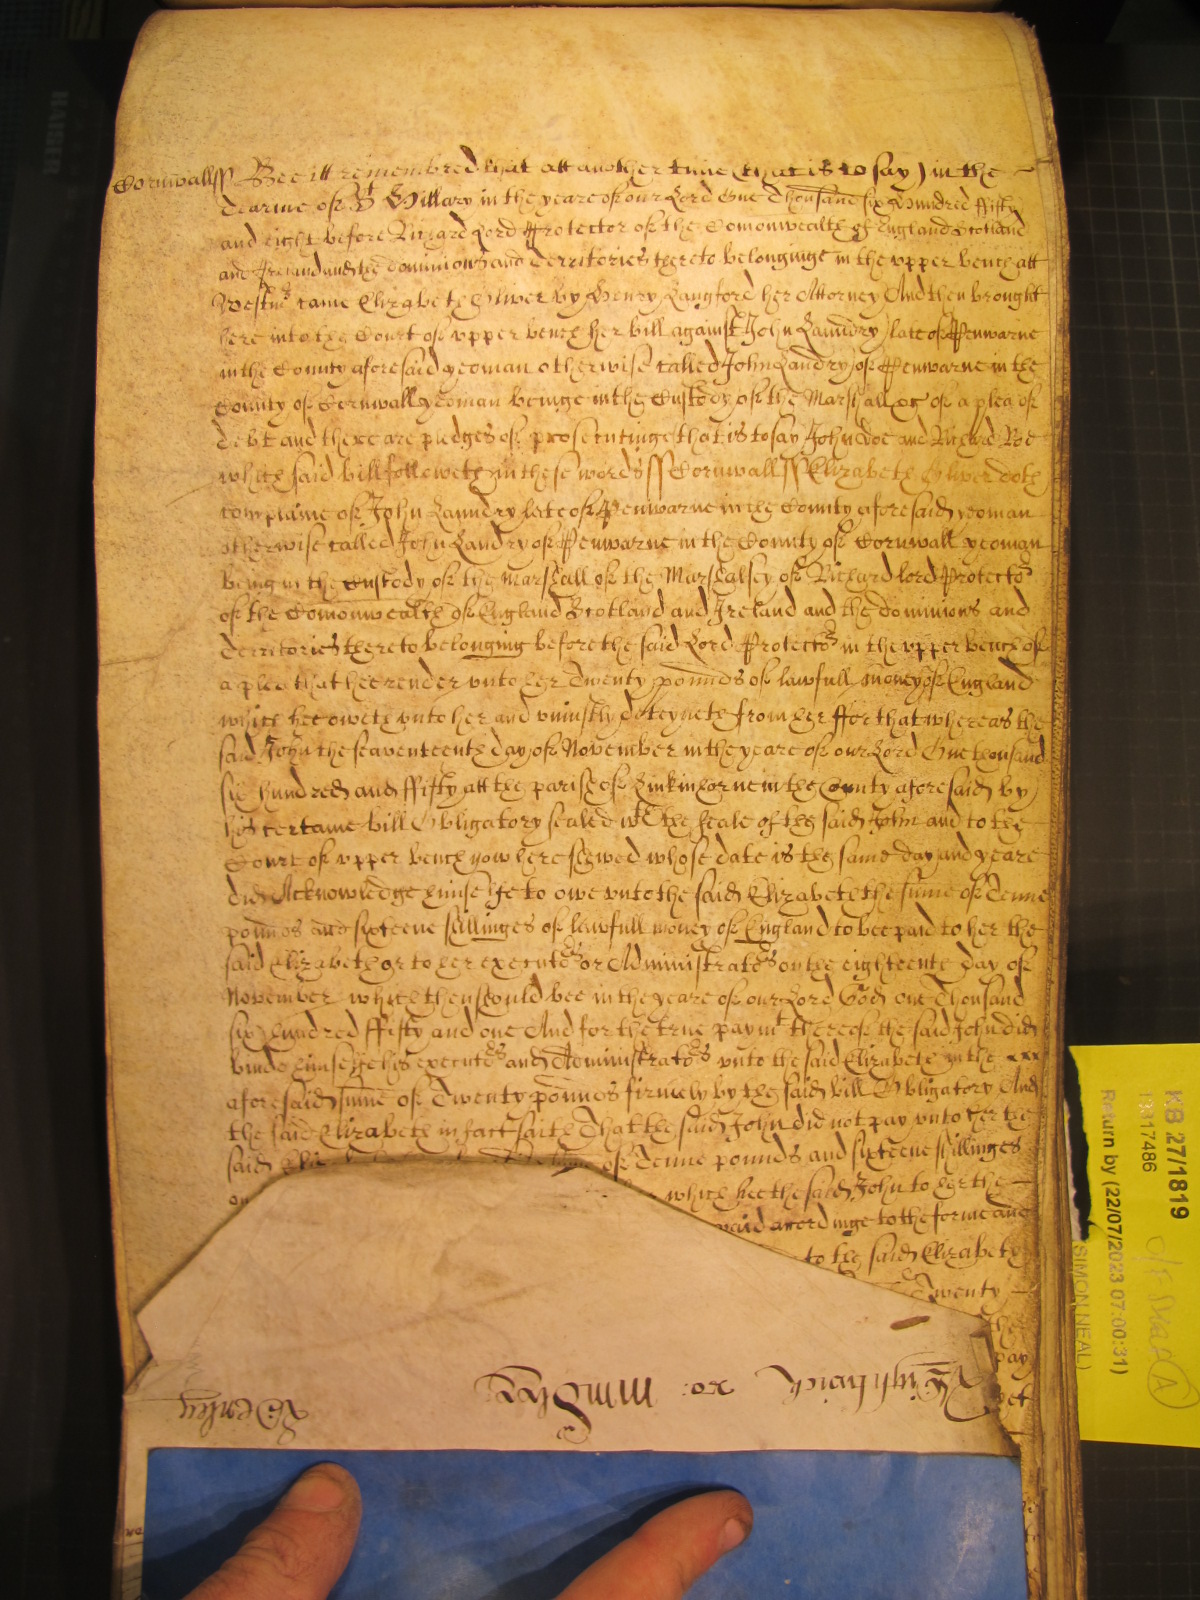 Cornwall ss Bee itt remembred that att another time (that is to say) in the
Tearme of St Hillary in the yeare of our Lord One Thousand six Hundred fifty
and eight before Richard Lord Protector of the Comonwealth of England Scotland
and Ireland and the dominions and Territories thereto belonginge in the upper bench att
Westmr came Elizabeth Oliver by Henry Langford her Attorney And then brought
here into the Court of upper bench her bill against John Laundry late of Penwarne
in the County aforesaid yeoman otherwise called John Landry of Penwarne in the
County of Cornwall yeoman beinge in the Custody of the Marshall &c of a plea of
debt and there are pledges of prosecutinge that is to say John Doe and Richard Roe
which said bill followeth in these words ss Cornwall ss Elizabeth Oliver doth
complaine of John Laundry late of Penwarne in the County aforesaid yeoman
otherwise called John Landry of Penwarne in the County of Cornwall yeoman
being in the Custody of the Marshall of the Marshalsey of Richard lord Protector
of the Comonwealth of England Scotland and Ireland and the dominions and
Territories thereto belonging before the said Lord Protector in the upper bench of
a plea that hee render unto her Twenty pounds of lawfull money of England
which hee oweth unto her and uniustly deteyneth from her ffor that whereas the
said John the seaventeenth day of November in the yeare of our Lord One thousand
six hundred and ffifty att the parish of Linkinhorne in the County aforesaid by
his certaine bill Obligatory sealed wth the seale of the said John and to the
Court of upper bench now here shewed whose date is the same day and yeare
did Acknowledge himselfe to owe unto the said Elizabeth the sume of Tenne
pounds and sixteene shillinges of lawfull money of England to bee paid to her the
said Elizabeth or to her executors or Administrators on the eighteenth day of
November which then should bee in the yeare of our Lord God one Thousand
six hundred ffifty and one And for the true paymt thereof the said John did
binde himselfe his executors and Administrators unto the said Elizabeth in the
aforesaid sume of Twenty pounds firmely by the said bill Obligatory And
the said Elizabeth in fact saith That the said John did not pay unto her the
said of Tenne pounds and sixteene shillinges
on which hee the said John to her the
paid accordinge to the forme and
to the said Elizabeth
Twenty
the
pay
yet
KB 27/1819
Return by (22/07/2023 07:00:31)
SIMON NEAL)
A